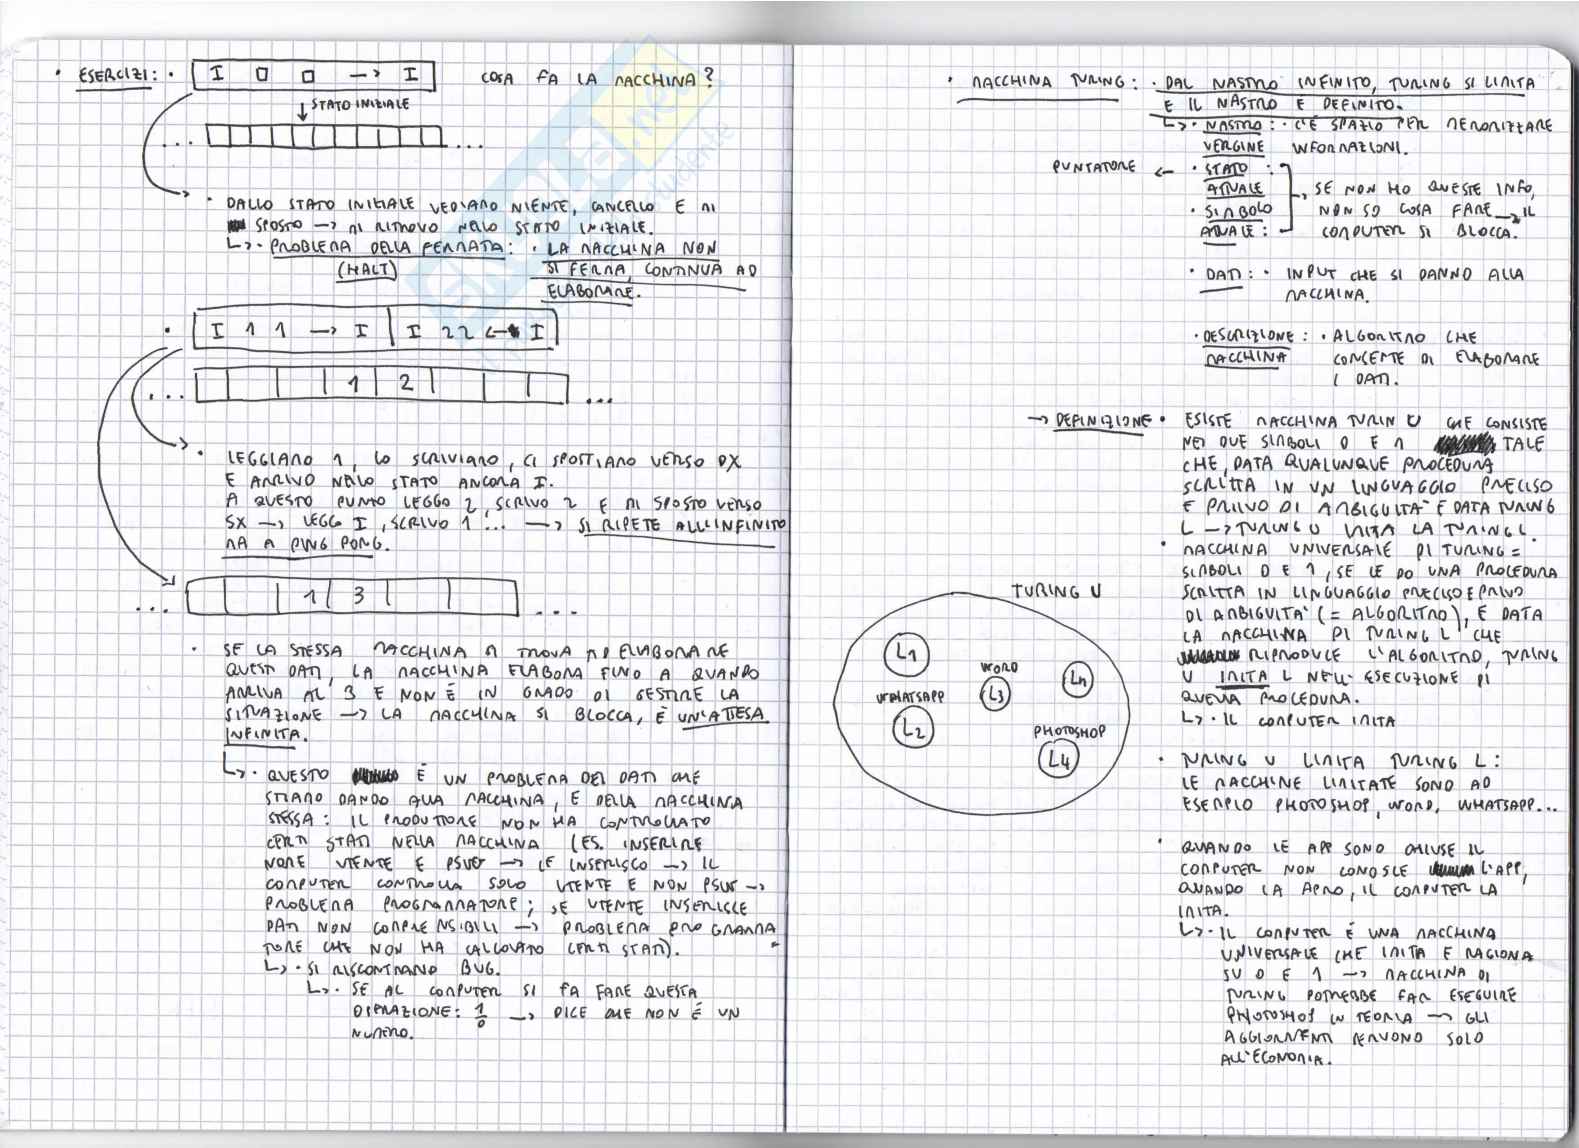 • ESERCIZI: • I □ □ → I COSA FA LA MACCHINA?
↓ STATO INIZIALE
... ...
• DALLO STATO INIZIALE VEDIAMO NIENTE, CANCELLO E MI
SPOSTO → MI RITROVO NELLO STATO INIZIALE.
↳• PROBLEMA DELLA FERMATA: • LA MACCHINA NON
(HALT) SI FERMA, CONTINUA AD
ELABORARE.
• I 1 1 → I | I 2 2 ← I
... 1 2 ...
• LEGGIAMO 1, LO SCRIVIAMO, CI SPOSTIAMO VERSO DX
E ARRIVO NELLO STATO ANCORA I.
A QUESTO PUNTO LEGGO 2, SCRIVO 2 E MI SPOSTO VERSO
SX → LEGGO I, SCRIVO 1 ... → SI RIPETE ALL'INFINITO
MA A PING PONG.
... 1 3 ...
• SE LA STESSA MACCHINA SI TROVA AD ELABORARE
QUESTI DATI, LA MACCHINA ELABORA FINO A QUANDO
ARRIVA AL 3 E NON È IN GRADO DI GESTIRE LA
SITUAZIONE → LA MACCHINA SI BLOCCA, È UN'ATTESA
INFINITA.
↳• QUESTO È UN PROBLEMA DEI DATI CHE
STIAMO DANDO ALLA MACCHINA, E DELLA MACCHINA
STESSA: IL PRODUTTORE NON HA CONTROLLATO
CERTI STATI NELLA MACCHINA (ES. INSERIRE
NOME UTENTE E PSWD → LE INSERISCO → IL
COMPUTER CONTROLLA SOLO UTENTE E NON PSW →
PROBLEMA PROGRAMMATORE; SE UTENTE INSERISCE
DATI NON COMPRENSIBILI → PROBLEMA PROGRAMMA
TORE CHE NON HA CALCOLATO CERTI STATI).
↳• SI RISCONTRANO BUG.
↳• SE AL COMPUTER SI FA FARE QUESTA
OPERAZIONE: 1/0 → DICE CHE NON È UN
NUMERO.
• MACCHINA TURING: • DAL NASTRO INFINITO, TURING SI LIMITA
E IL NASTRO È DEFINITO.
↳• NASTRO: • C'È SPAZIO PER MEMORIZZARE
VERGINE INFORMAZIONI.
PUNTATORE ← • STATO :
ATTUALE SE NON HO QUESTE INFO,
• SIMBOLO NON SO COSA FARE → IL
ATTUALE: COMPUTER SI BLOCCA.
• DATI: • INPUT CHE SI DANNO ALLA
MACCHINA.
• DESCRIZIONE: • ALGORITMO CHE
MACCHINA CONSENTE DI ELABORARE
I DATI.
→ DEFINIZIONE • ESISTE MACCHINA TURIN U CHE CONSISTE
NEI DUE SIMBOLI 0 E 1 TALE
CHE, DATA QUALUNQUE PROCEDURA
SCRITTA IN UN LINGUAGGIO PRECISO
E PRIVO DI AMBIGUITÀ E DATA TURING
L → TURING U IMITA LA TURING L.
• MACCHINA UNIVERSALE DI TURING =
SIMBOLI 0 E 1, SE LE DO UNA PROCEDURA
SCRITTA IN LINGUAGGIO PRECISO E PRIVO
DI AMBIGUITÀ (= ALGORITMO), E DATA
LA MACCHINA DI TURING L CHE
RIPRODUCE L'ALGORITMO, TURING
U IMITA L NELL'ESECUZIONE DI
QUELLA PROCEDURA.
↳• IL COMPUTER IMITA
TURING U
L1
WORD
L3
Ln
WHATSAPP
L2
PHOTOSHOP
L4
• TURING U LIMITA TURING L:
LE MACCHINE LIMITATE SONO AD
ESEMPIO PHOTOSHOP, WORD, WHATSAPP...
• QUANDO LE APP SONO CHIUSE IL
COMPUTER NON CONOSCE L'APP,
QUANDO LA APRO, IL COMPUTER LA
IMITA.
↳• IL COMPUTER È UNA MACCHINA
UNIVERSALE CHE IMITA E RAGIONA
SU 0 E 1 → MACCHINA DI
TURING POTREBBE FAR ESEGUIRE
PHOTOSHOP IN TEORIA → GLI
AGGIORNMENTI SERVONO SOLO
ALL'ECONOMIA.